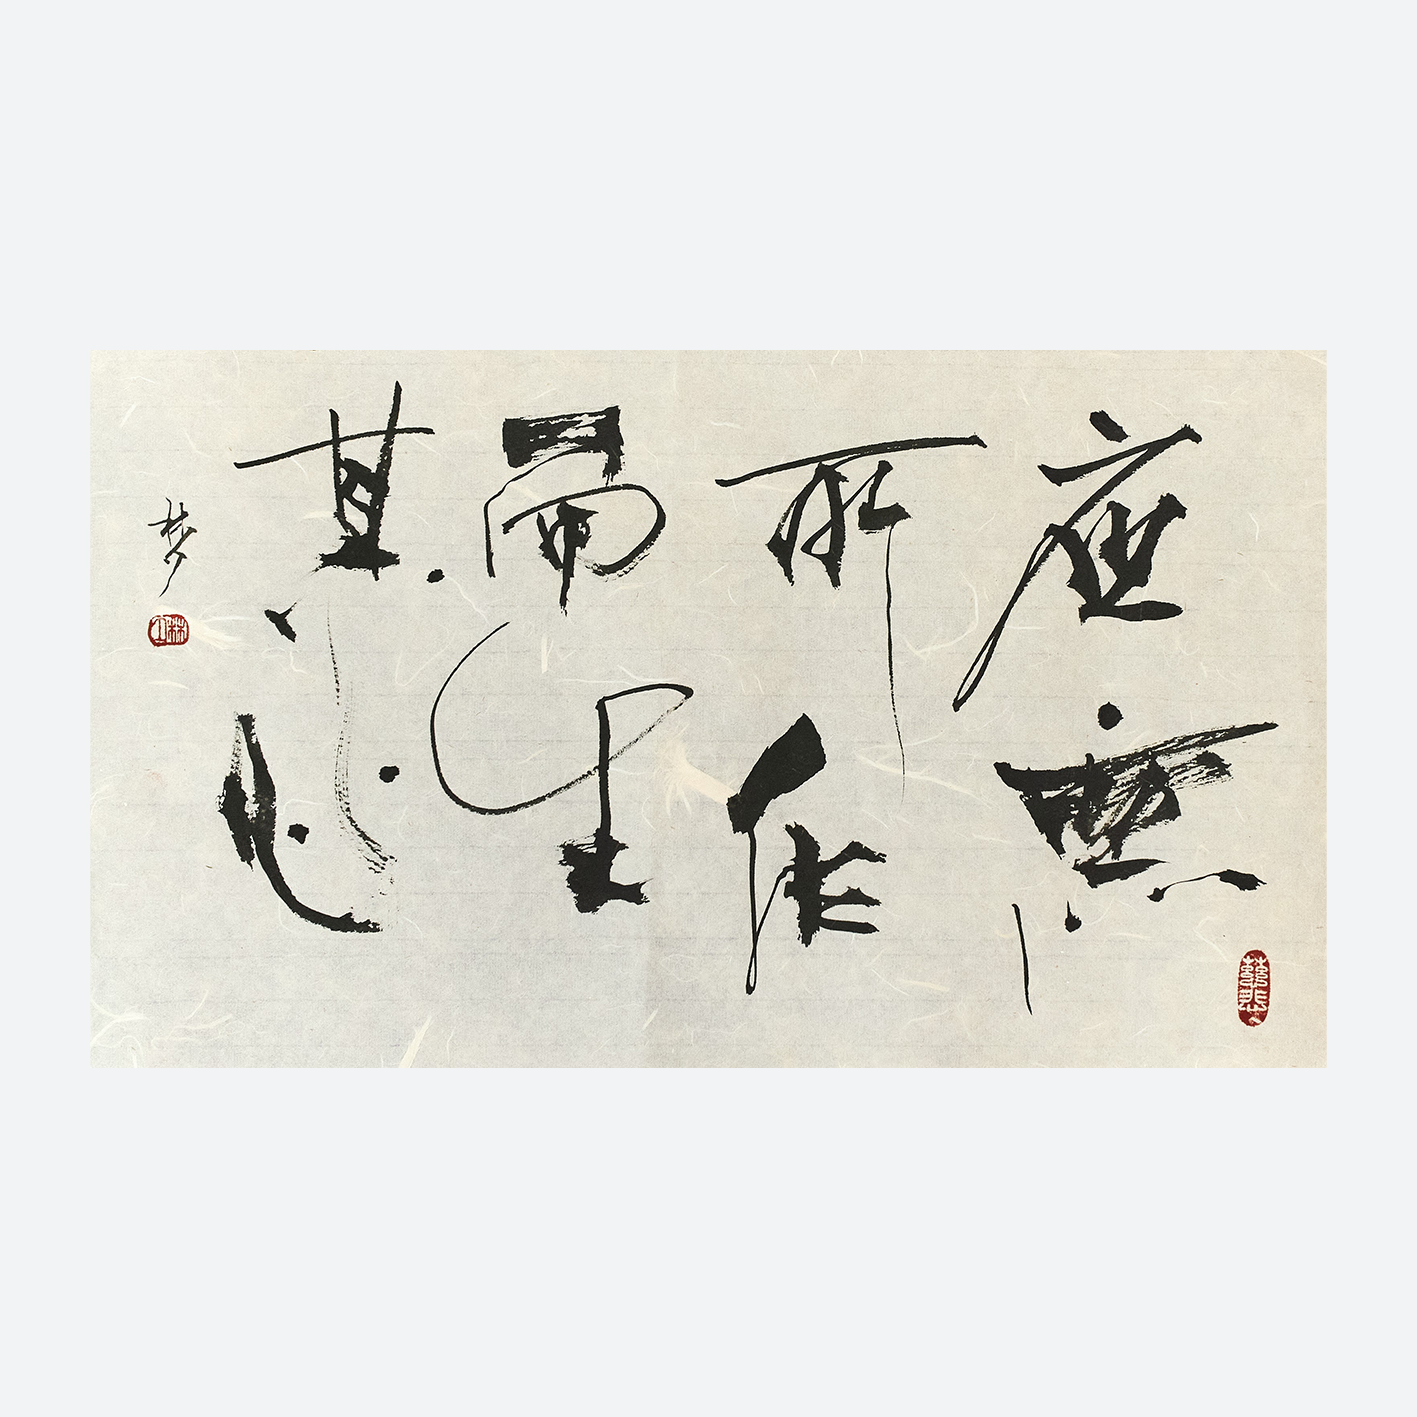 應無
所作
而生
其心
梦